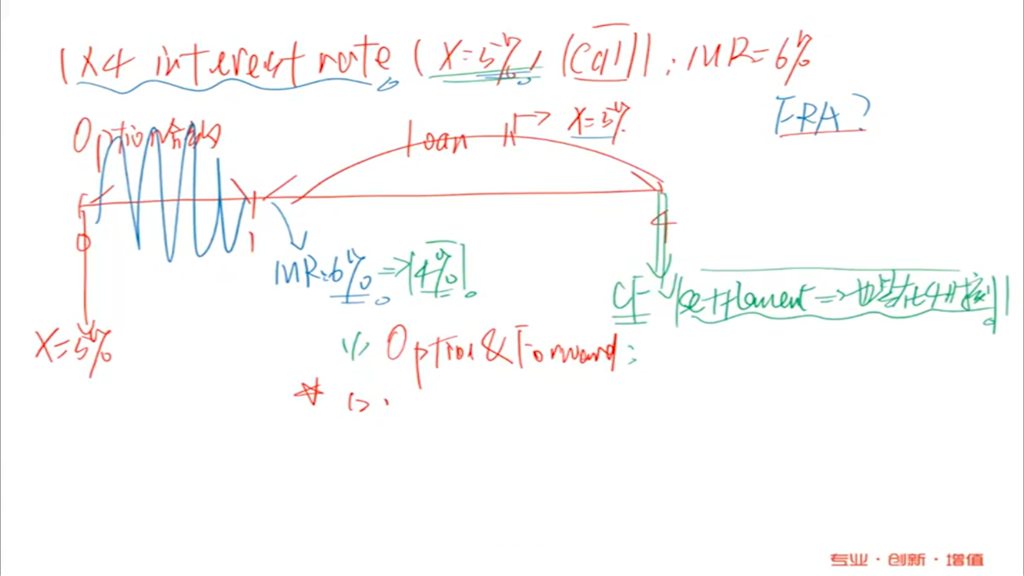 1×4 interest rate (X=5%) (Call): MR=6%
FRA?
Option
loan → X=5%
0 1 4
MR=6% => 4%
CF settlement =>
X=5%
(1) Option & Forward:
专业·创新·增值